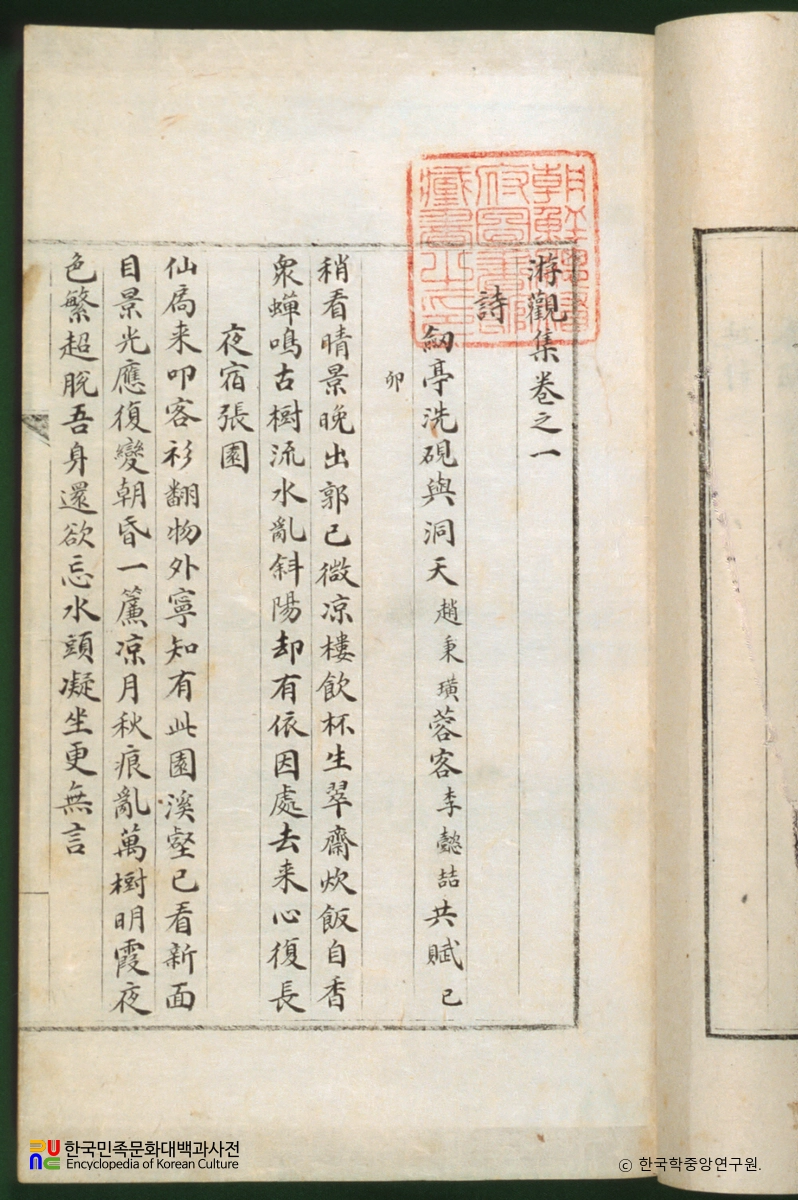 游觀集卷之一
詩
紉亭洗硯與洞天趙秉璜蓉客李懿喆共賦己
卯
稍看晴景晚出郭已微凉樓飮杯生翠齋炊飯自香
衆蟬鳴古樹流水亂斜陽却有依因處去来心復長
夜宿張園
仙扄来叩客衫翻物外寧知有此園溪壑已看新面
目景光應復變朝昏一簾凉月秋痕亂萬樹明霞夜
色繁超脫吾身還欲忘水頭凝坐更無言
한국민족문화대백과사전
Encyclopedia of Korean Culture
© 한국학중앙연구원.